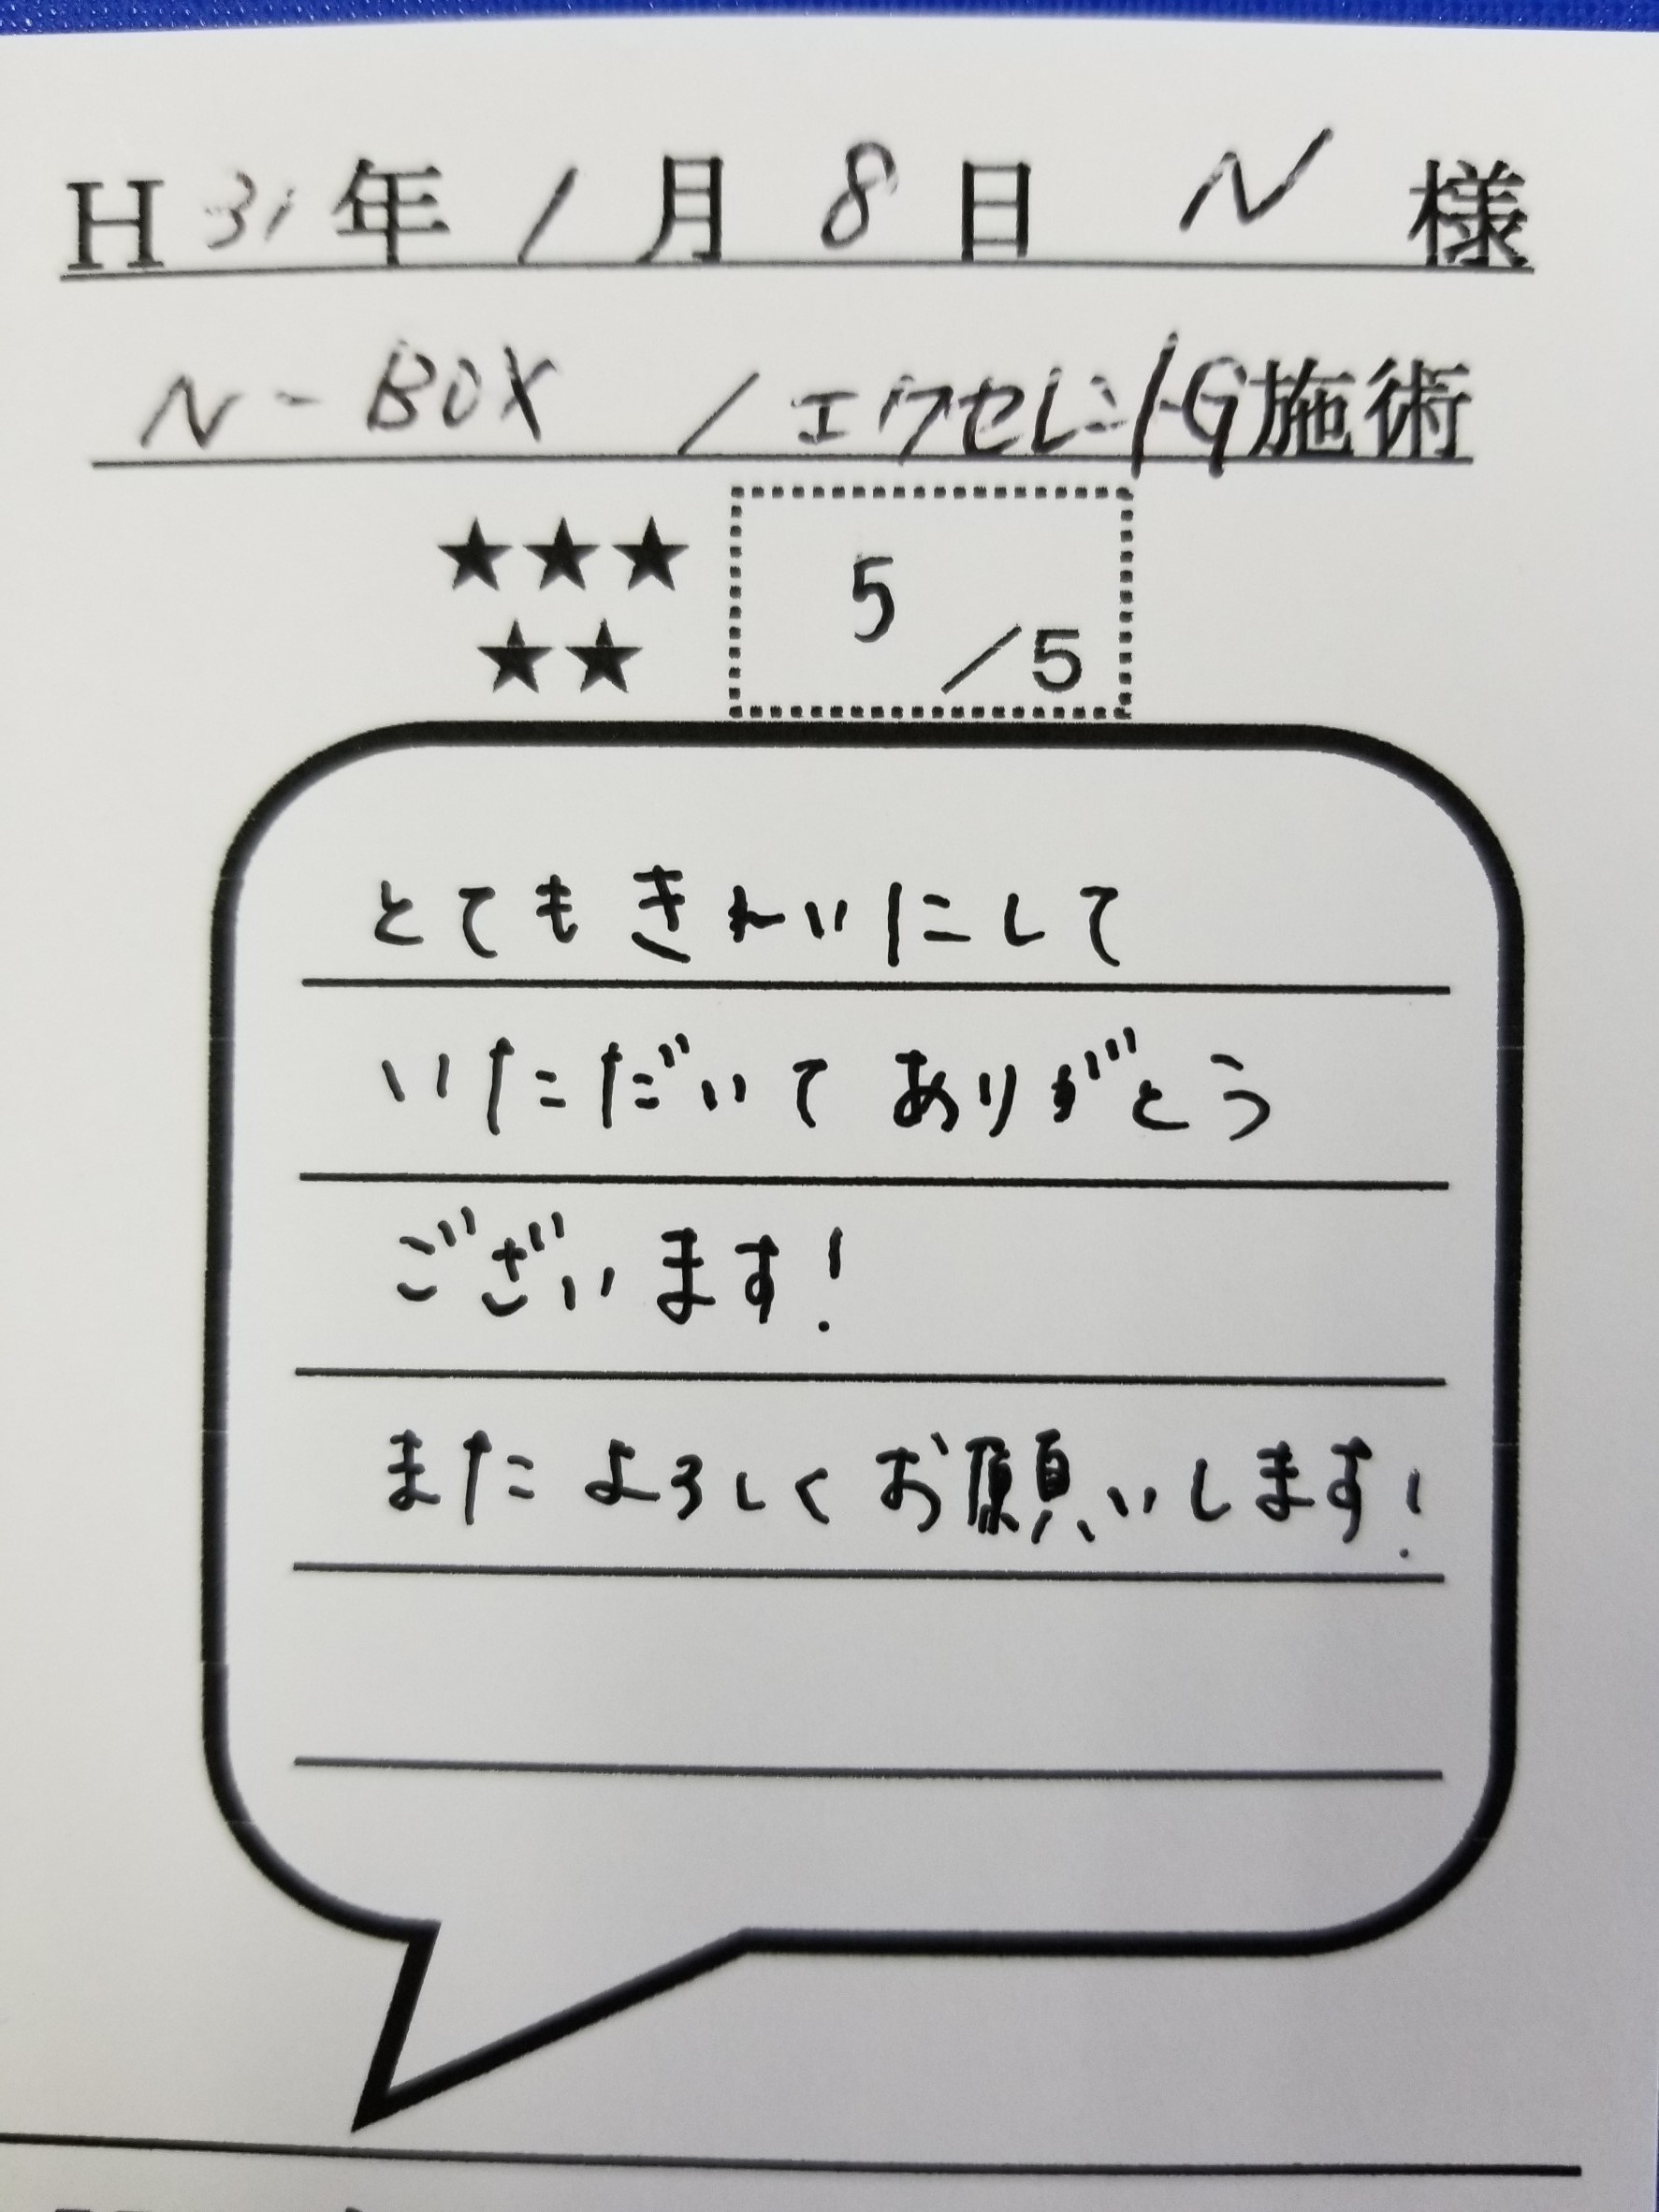 H31年1月8日 N 様
N-BOX /エクセレントG施術
★★★
★★
5/5
とてもきれいにして
いただいてありがとう
ございます!
またよろしくお願いします!